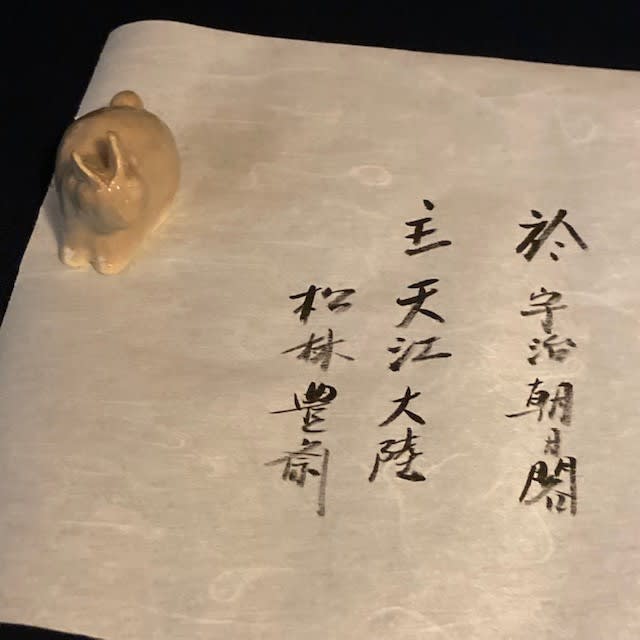 於 宇治朝日閣
主 天江大陸
松林豊斎